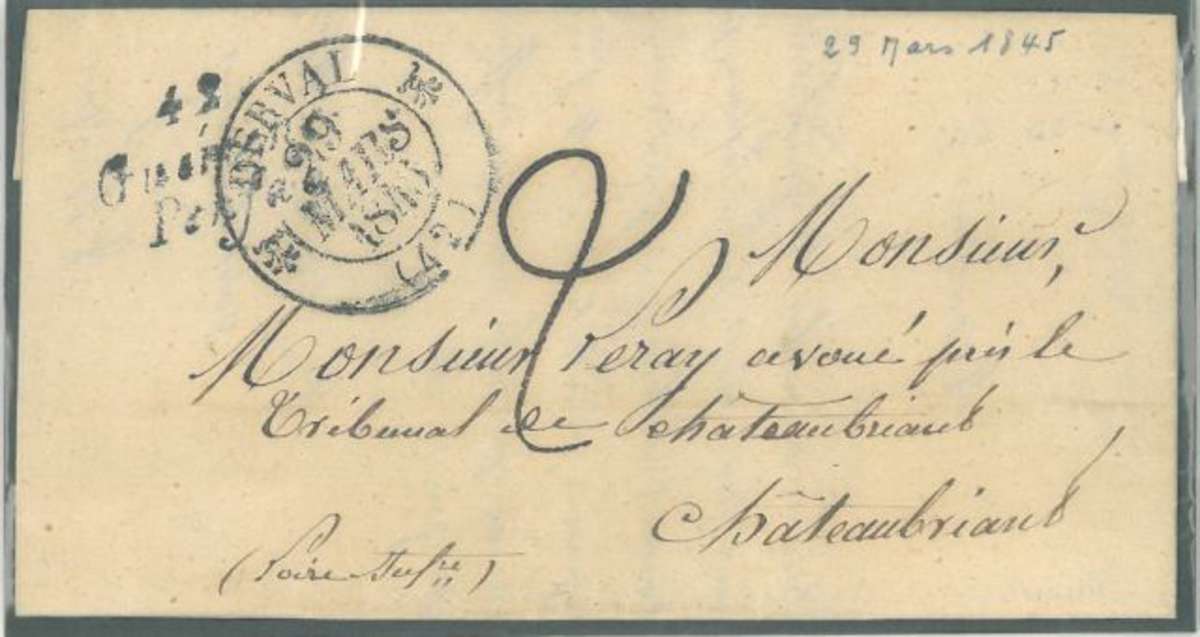 29 Mars 1845
42
DERVAL
29
MARS
(42)
2
Monsieur,
Monsieur Peray avoué près le
Tribunal de Châteaubriant
Châteaubriant
(Loire Infre)